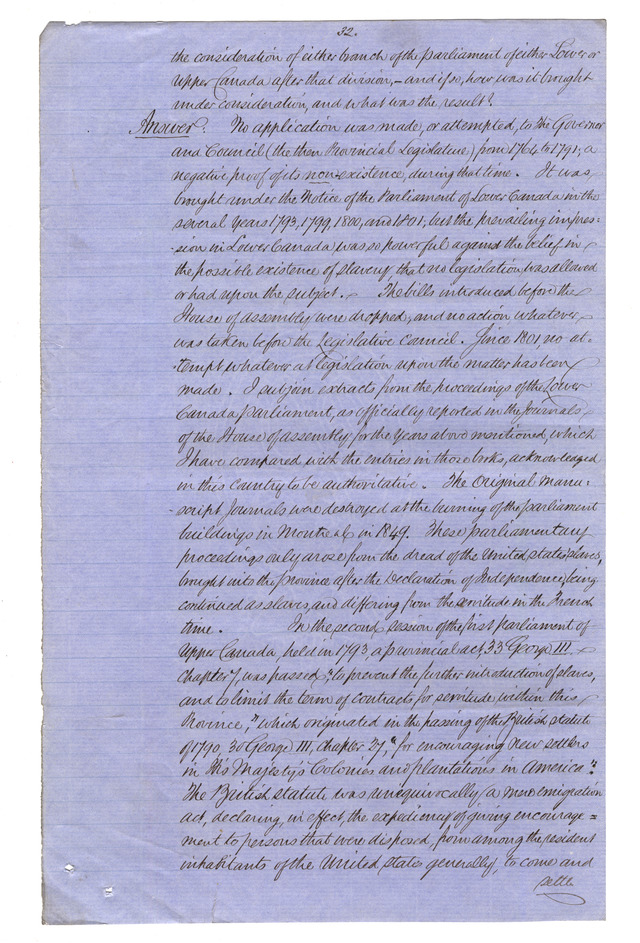 32.
the consideration of either branch of the parliament of either Lower or
Upper Canada after that division,- and if so, how was it brought
under consideration, and what was the result?
Answer. No application was made, or attempted, to the Governor
and Council (the then Provincial Legislative) from 1764 to 1791, a
negative proof of its non-existence, during that time. It was
brought under the Notice of the Parliament of Lower Canada in the
several Years 1793, 1799, 1800, and 1801, but the prevailing impres=
=sion in Lower Canada was so powerful against the belief in
the possible existence of slavery, that no legislation was allowed
or had upon the subject. The bills introduced before the
House of assembly were dropped, and no action whatever
was taken before the Legislative Council. Since 1801 no at=
=tempt whatever at legislation upon the matter has been
made. I subjoin extracts from the proceedings of the Lower
Canada parliament, as officially reported in the Journals
of the House of assembly, for the Years above mentioned, which
I have compared with the entries in those books, acknowledged
in this Country to be authoritative. The Original Manu=
script Journals were destroyed at the burning of the parliament
buildings in Montreal in 1849. These parliamentary
proceedings only arose from the dread of the United states slaves,
brought into the province after the Declaration of Independence, being
continued as slaves, and differing from the servitude in the French
time. In the second session of the first parliament of
Upper Canada, held in 1793 a provincial act, 33 George III.
chapter 7, was passed, "to prevent the further introduction of slaves,
and to limit the term of contracts for servitude within this
Province," which originated in the passing of the British statute
of 1790, 30 George III, Chapter 27, "for encouraging New settlers
in His Majesty's Colonies and plantations in America".
The British statute was unequivocally a mere emigration
act, declaring, in effect, the expediency of giving encourage=
ment to persons that were disposed, from among the resident
inhabitants of the United states generally, to come and
settle